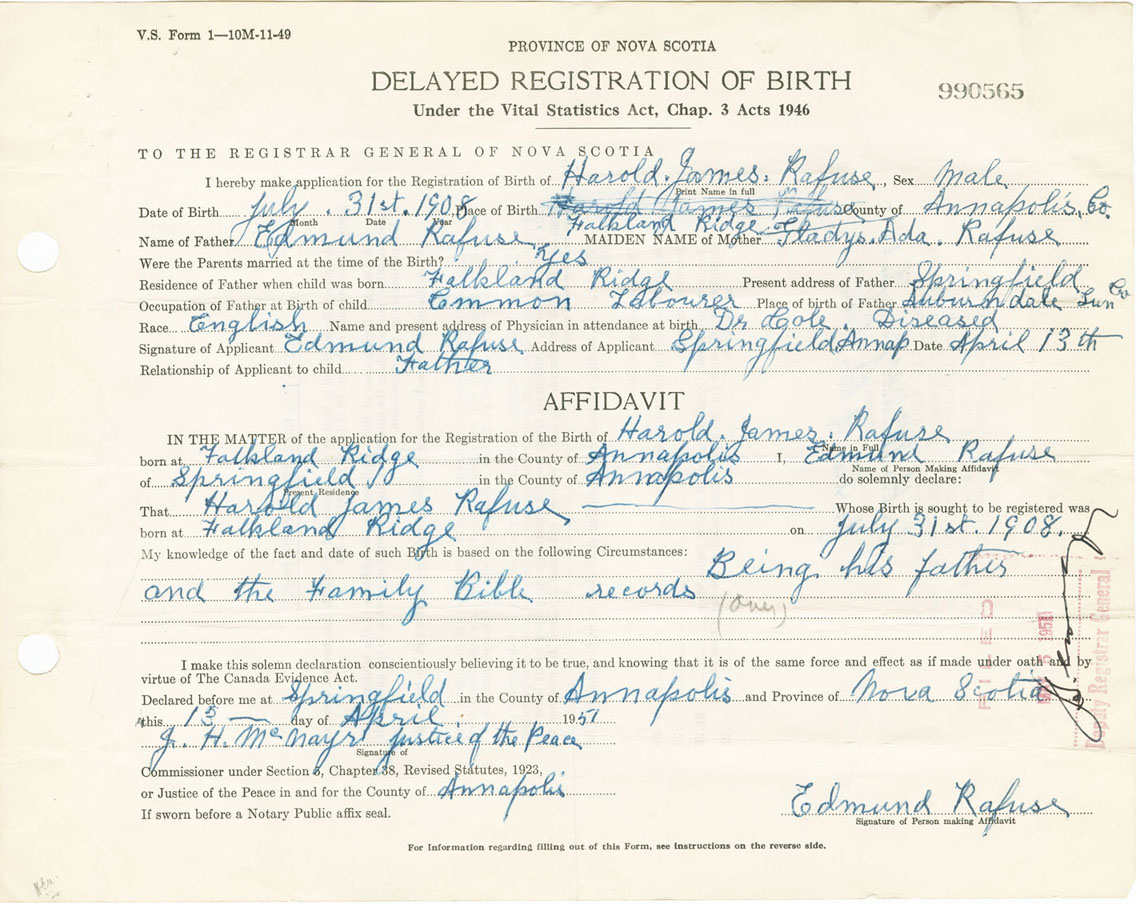 V.S. Form 1—10M-11-49
PROVINCE OF NOVA SCOTIA
DELAYED REGISTRATION OF BIRTH
990565
Under the Vital Statistics Act, Chap. 3 Acts 1946
TO THE REGISTRAR GENERAL OF NOVA SCOTIA
I hereby make application for the Registration of Birth of Harold James Rafuse, Sex Male
Print Name in full
Date of Birth July 31st. 1908 Place of Birth Harold James Rafuse County of Annapolis Co.
Month Date Year Falkland Ridge
Name of Father Edmund Rafuse MAIDEN NAME of Mother Gladys Ada. Rafuse
Were the Parents married at the time of the Birth? Yes
Residence of Father when child was born Falkland Ridge Present address of Father Springfield
Occupation of Father at Birth of child Common Labourer Place of birth of Father Auburndale Lun Co
Race English Name and present address of Physician in attendance at birth Dr Cole. Diseased
Signature of Applicant Edmund Rafuse Address of Applicant Springfield Annap Date April 13th
Relationship of Applicant to child Father
AFFIDAVIT
IN THE MATTER of the application for the Registration of the Birth of Harold. James. Rafuse
Name in Full
born at Falkland Ridge in the County of Annapolis I, Edmund Rafuse
Name of Person Making Affidavit
of Springfield in the County of Annapolis do solemnly declare:
Present Residence
That Harold James Rafuse Whose Birth is sought to be registered was
born at Falkland Ridge on July 31st. 1908.
My knowledge of the fact and date of such Birth is based on the following Circumstances:
Being his father
and the Family Bible records
(Over)
I make this solemn declaration conscientiously believing it to be true, and knowing that it is of the same force and effect as if made under oath and by
virtue of The Canada Evidence Act.
Declared before me at Springfield in the County of Annapolis and Province of Nova Scotia
this 13 — day of April 1951
J. H. McNayr Justice of the Peace
Signature of
Commissioner under Section 5, Chapter 38, Revised Statutes, 1923,
or Justice of the Peace in and for the County of Annapolis
If sworn before a Notary Public affix seal.
Edmund Rafuse
Signature of Person making Affidavit
For Information regarding filling out of this Form, see instructions on the reverse side.
FILED
5 1951
Deputy Registrar General